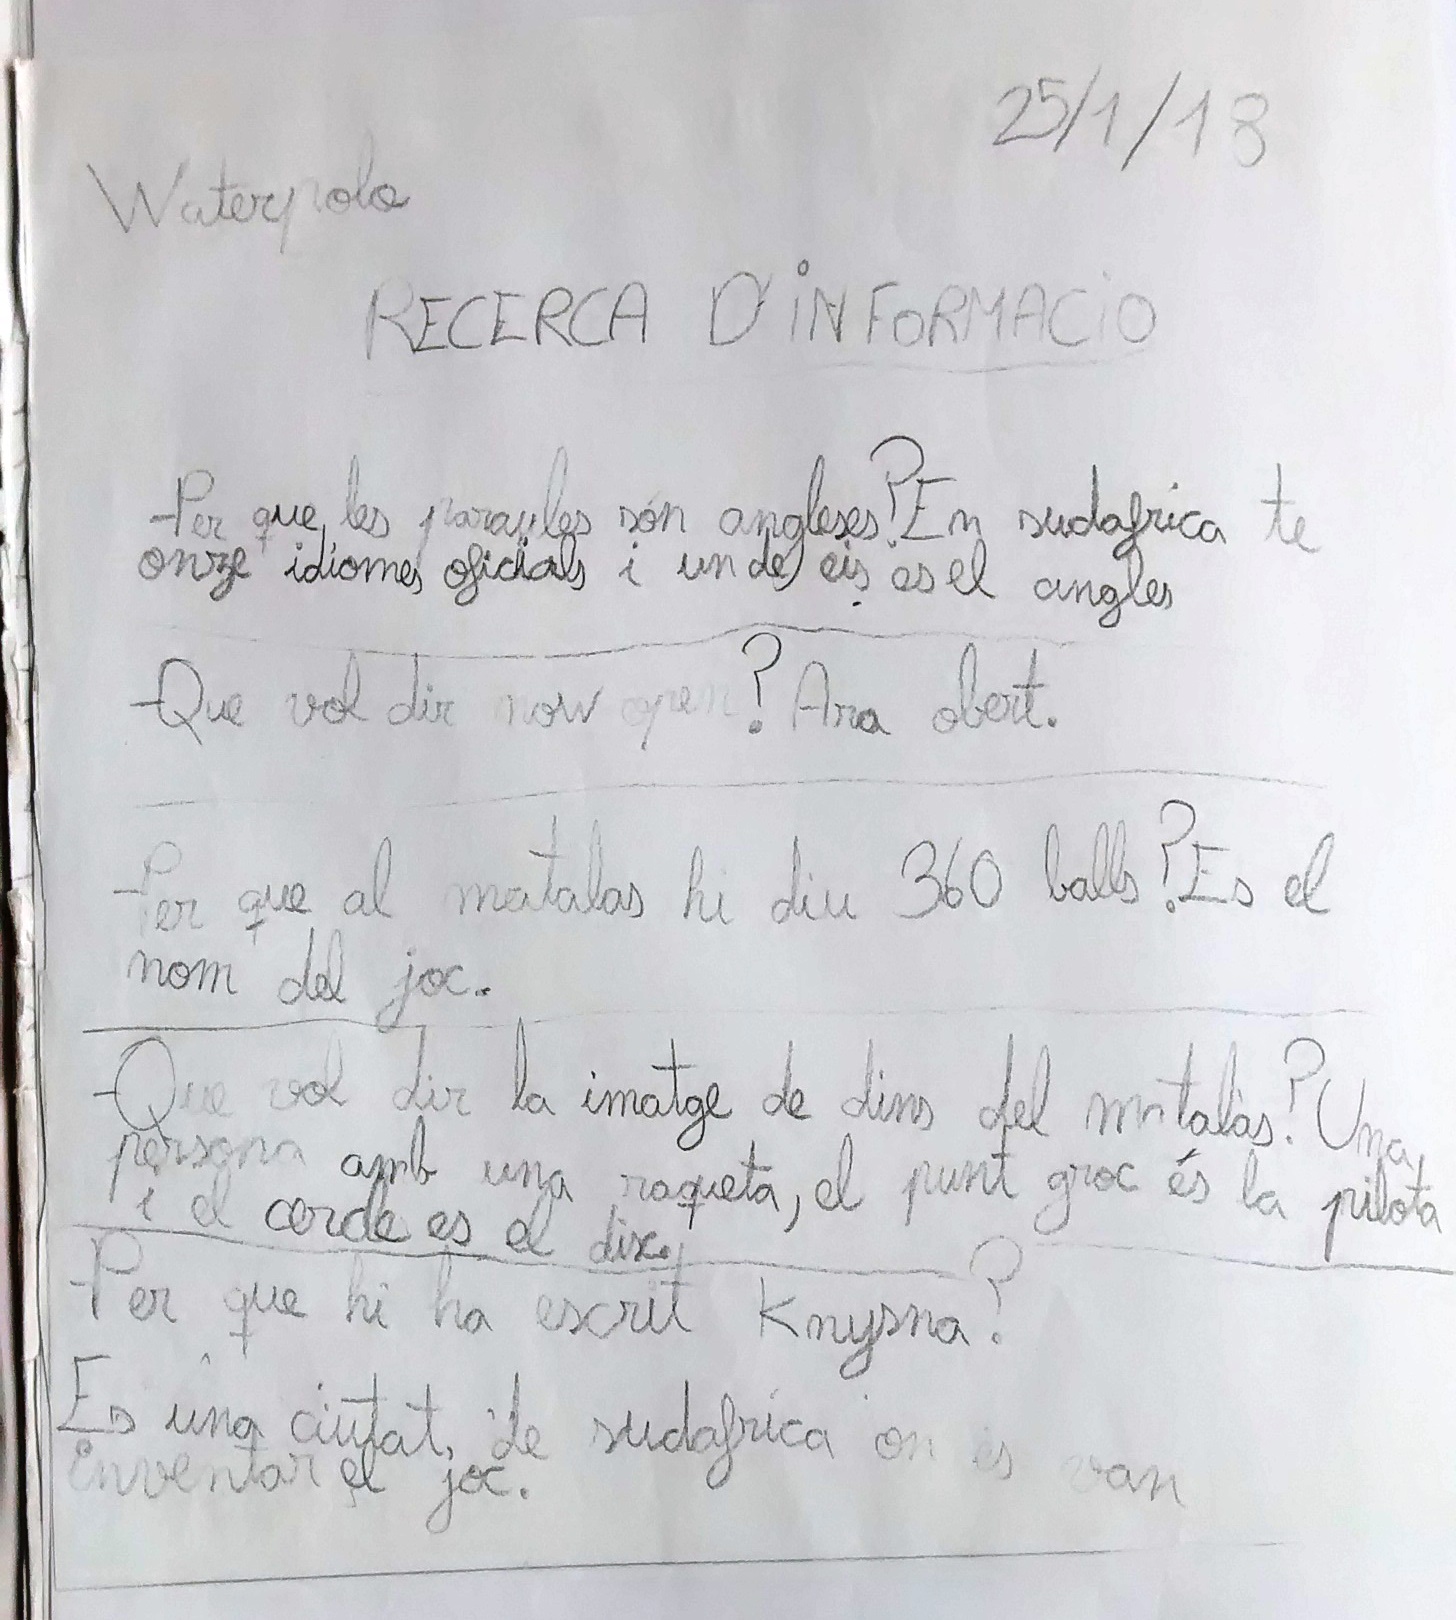 25/1/18
Waterpolo
RECERCA D'INFORMACIO
-Per que les paraules són angleses? En sudafrica te
onze idiomes oficials i un de eis es el angles
-Que vol dir now open? Ara obert.
-Per que al matalas hi diu 360 balls? Es el
nom del joc.
-Que vol dir la imatge de dins del matalàs? Una
persona amb una raqueta, el punt groc és la pilota
i el cercle es el disc.
-Per que hi ha escrit Knysna?
Es una ciutat, de sudafrica on es van
inventar el joc.